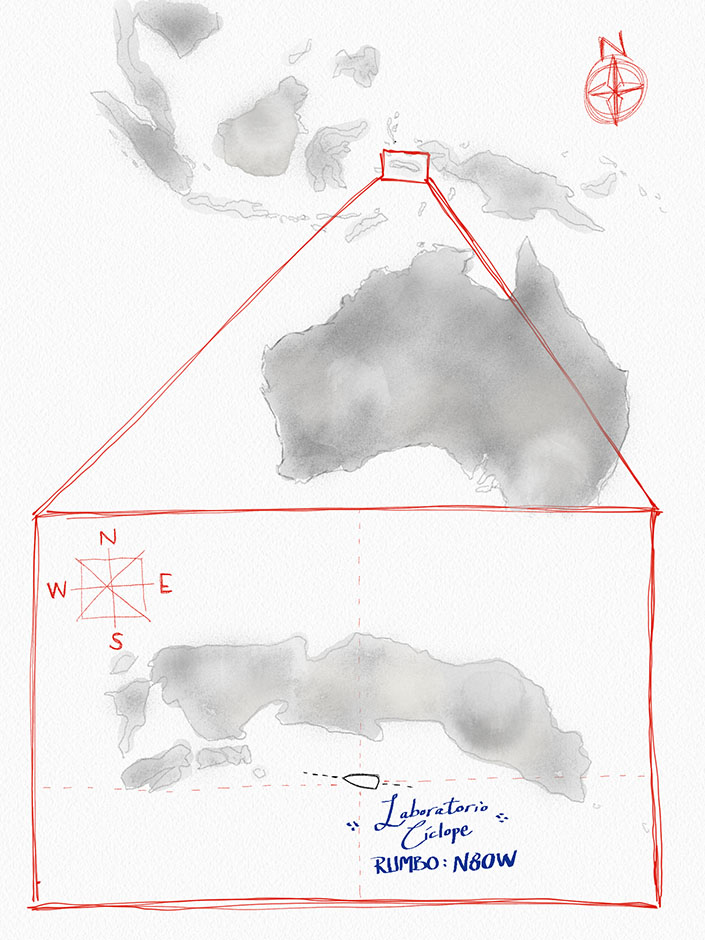 N
N
W E
S
Laboratorio
Cíclope
RUMBO: N80W